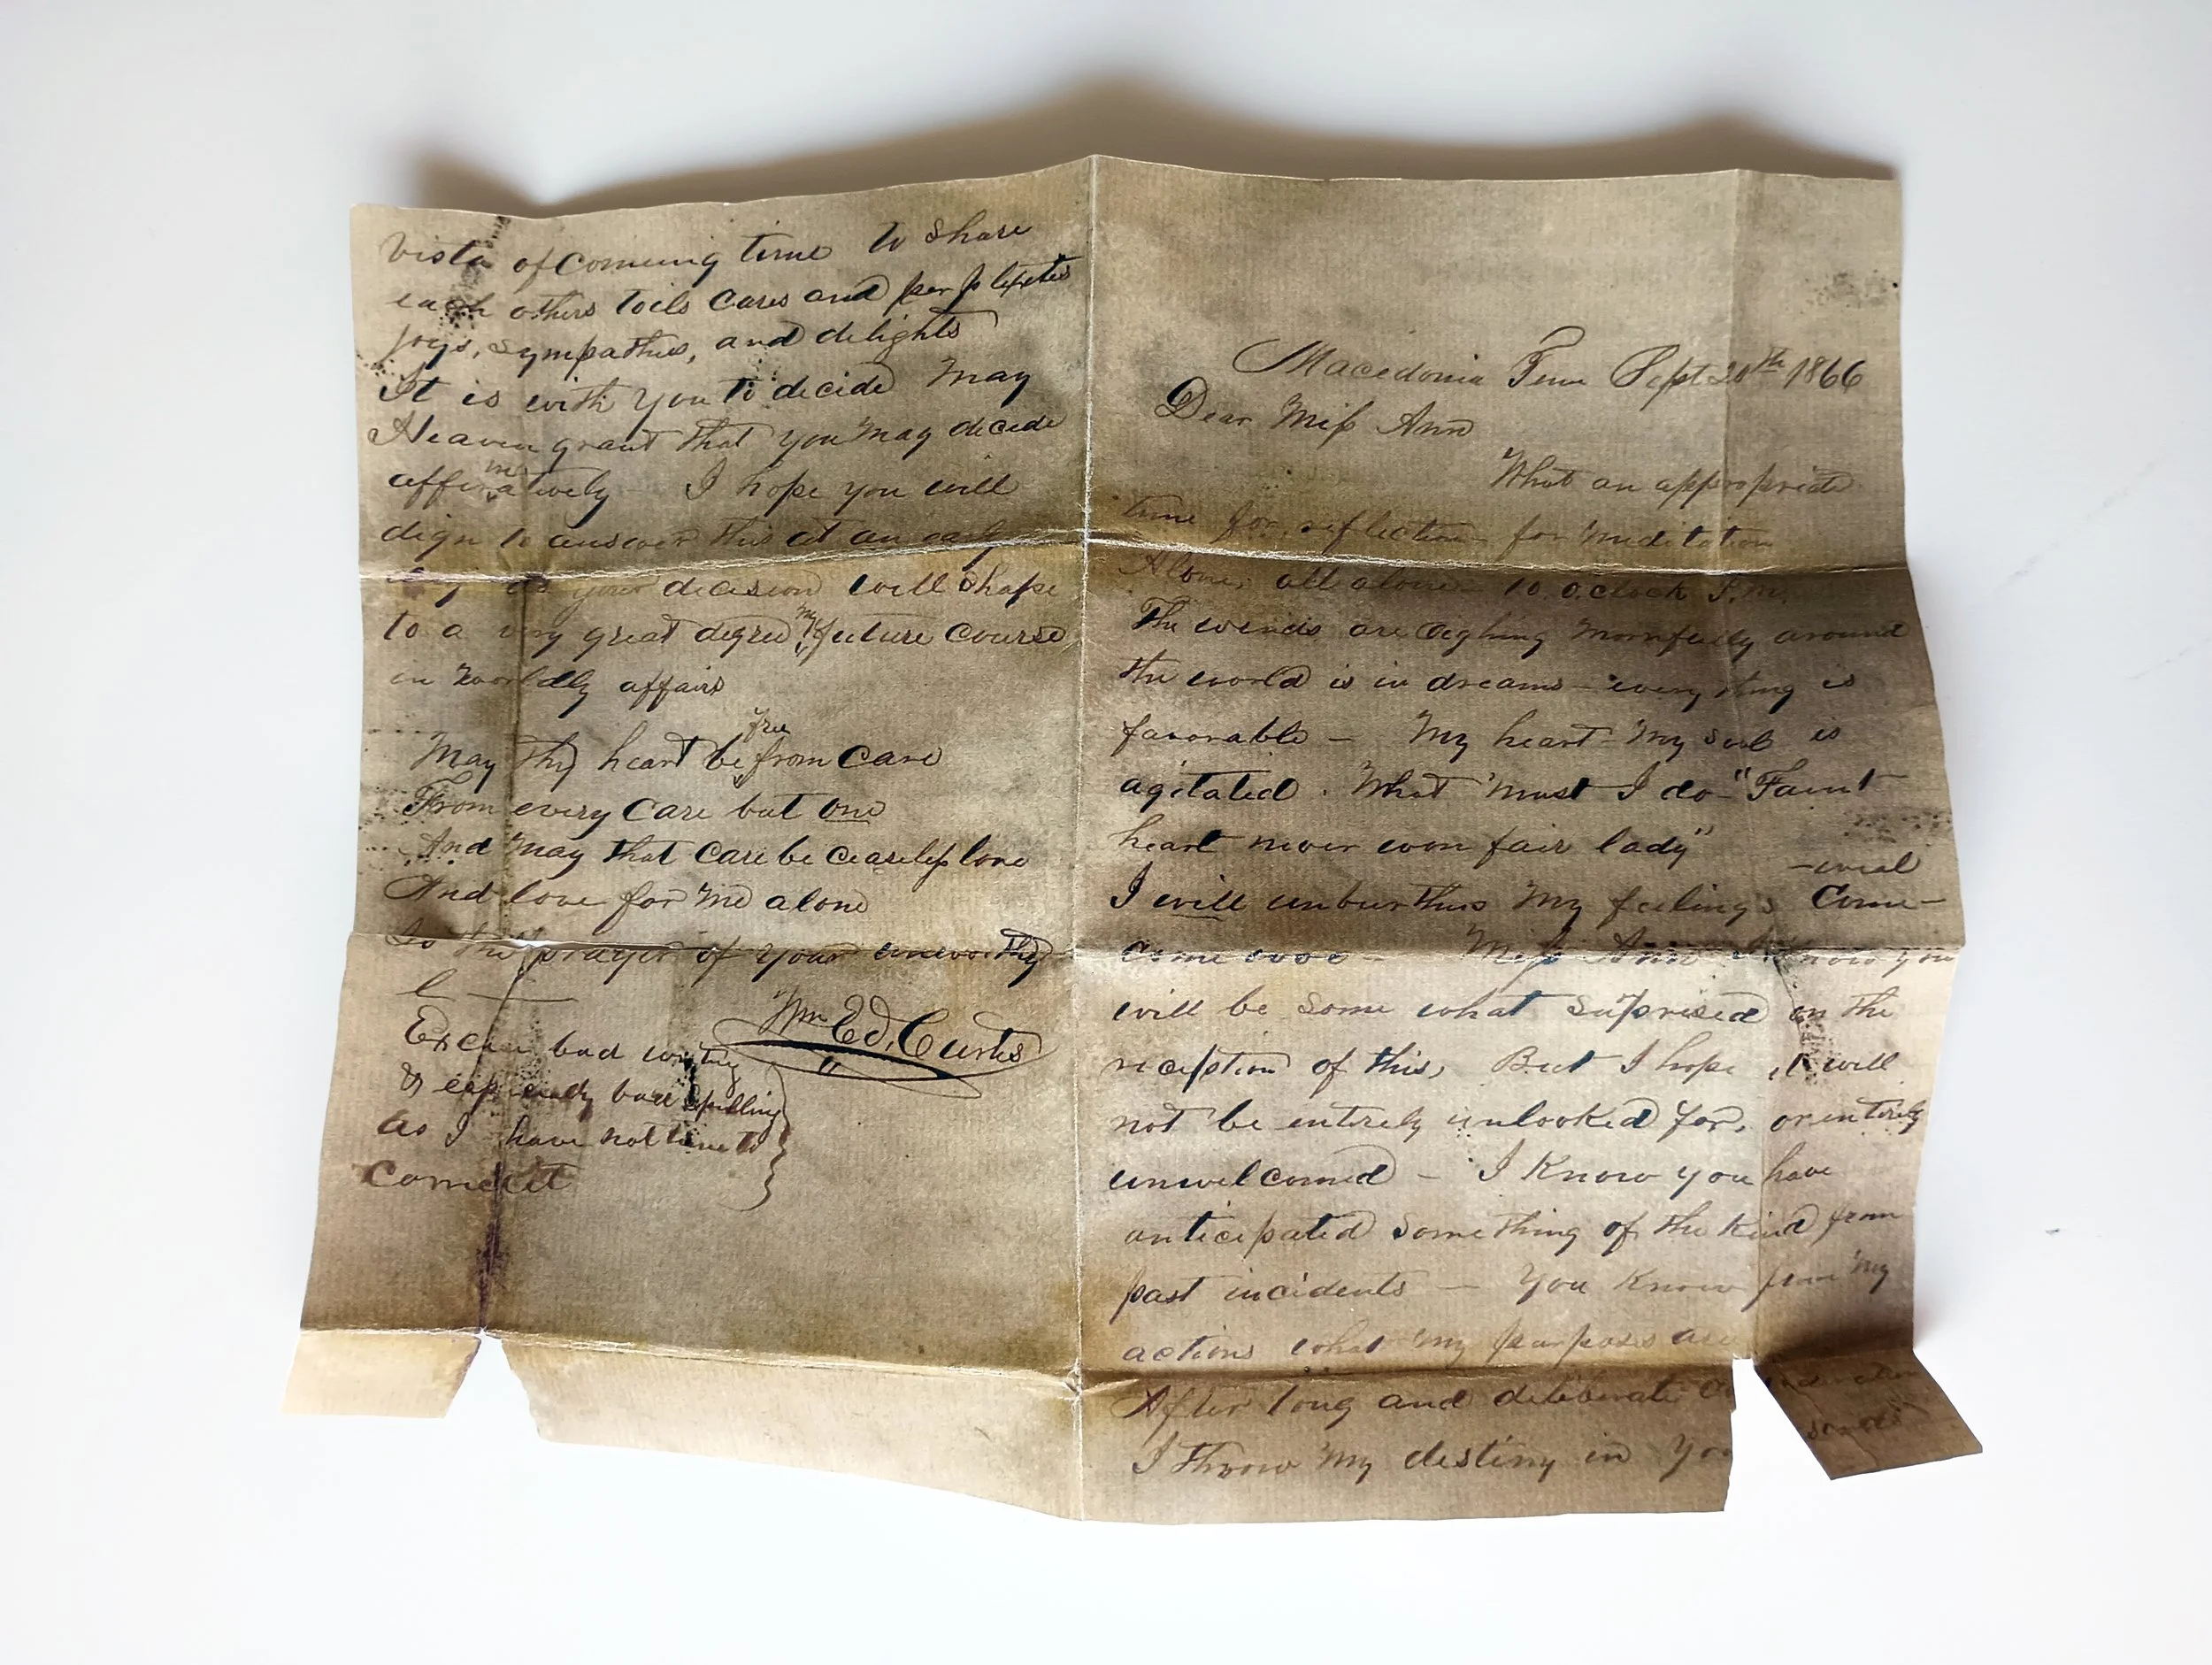 Macedonia Tenn Sept 20th 1866
Dear Miss Ann
What an appropriate
time for reflection for meditation
Alone, all alone 10. o.clock P.M.
The winds are sighing mornfully around
the world is in dreams - every thing is
favorable - My heart - My soul is
agitated. What must I do - "Faint
heart never won fair lady"
I will unburthen my feelings Come -
- weal
come woe - Miss Ann I know you
will be some what suprised on the
reception of this, But I hope it will
not be entirely unlooked for, or entirely
unwelcomed - I Know you have
anticipated something of the Kind from
past incidents - You Know from my
actions what my purposes are
After long and deliberate
I throw my destiny in
vista of comeing time to share
each others toils cares and perplexties
joys, sympathies, and delights
It is with you to decide May
Heaven grant that you may decide
affirmatively - I hope you will
dign to answer this at an early
day as your decision will shape
to a very great degree my future course
in worldly affairs
May thy heart be free from care
From every care but one
And may that care be ceaseless love
And love for me alone
Is the prayer of your unworthy
Wm Ed. Curtis
Excuse bad writing
& especially bad spelling
as I have not time to
correct